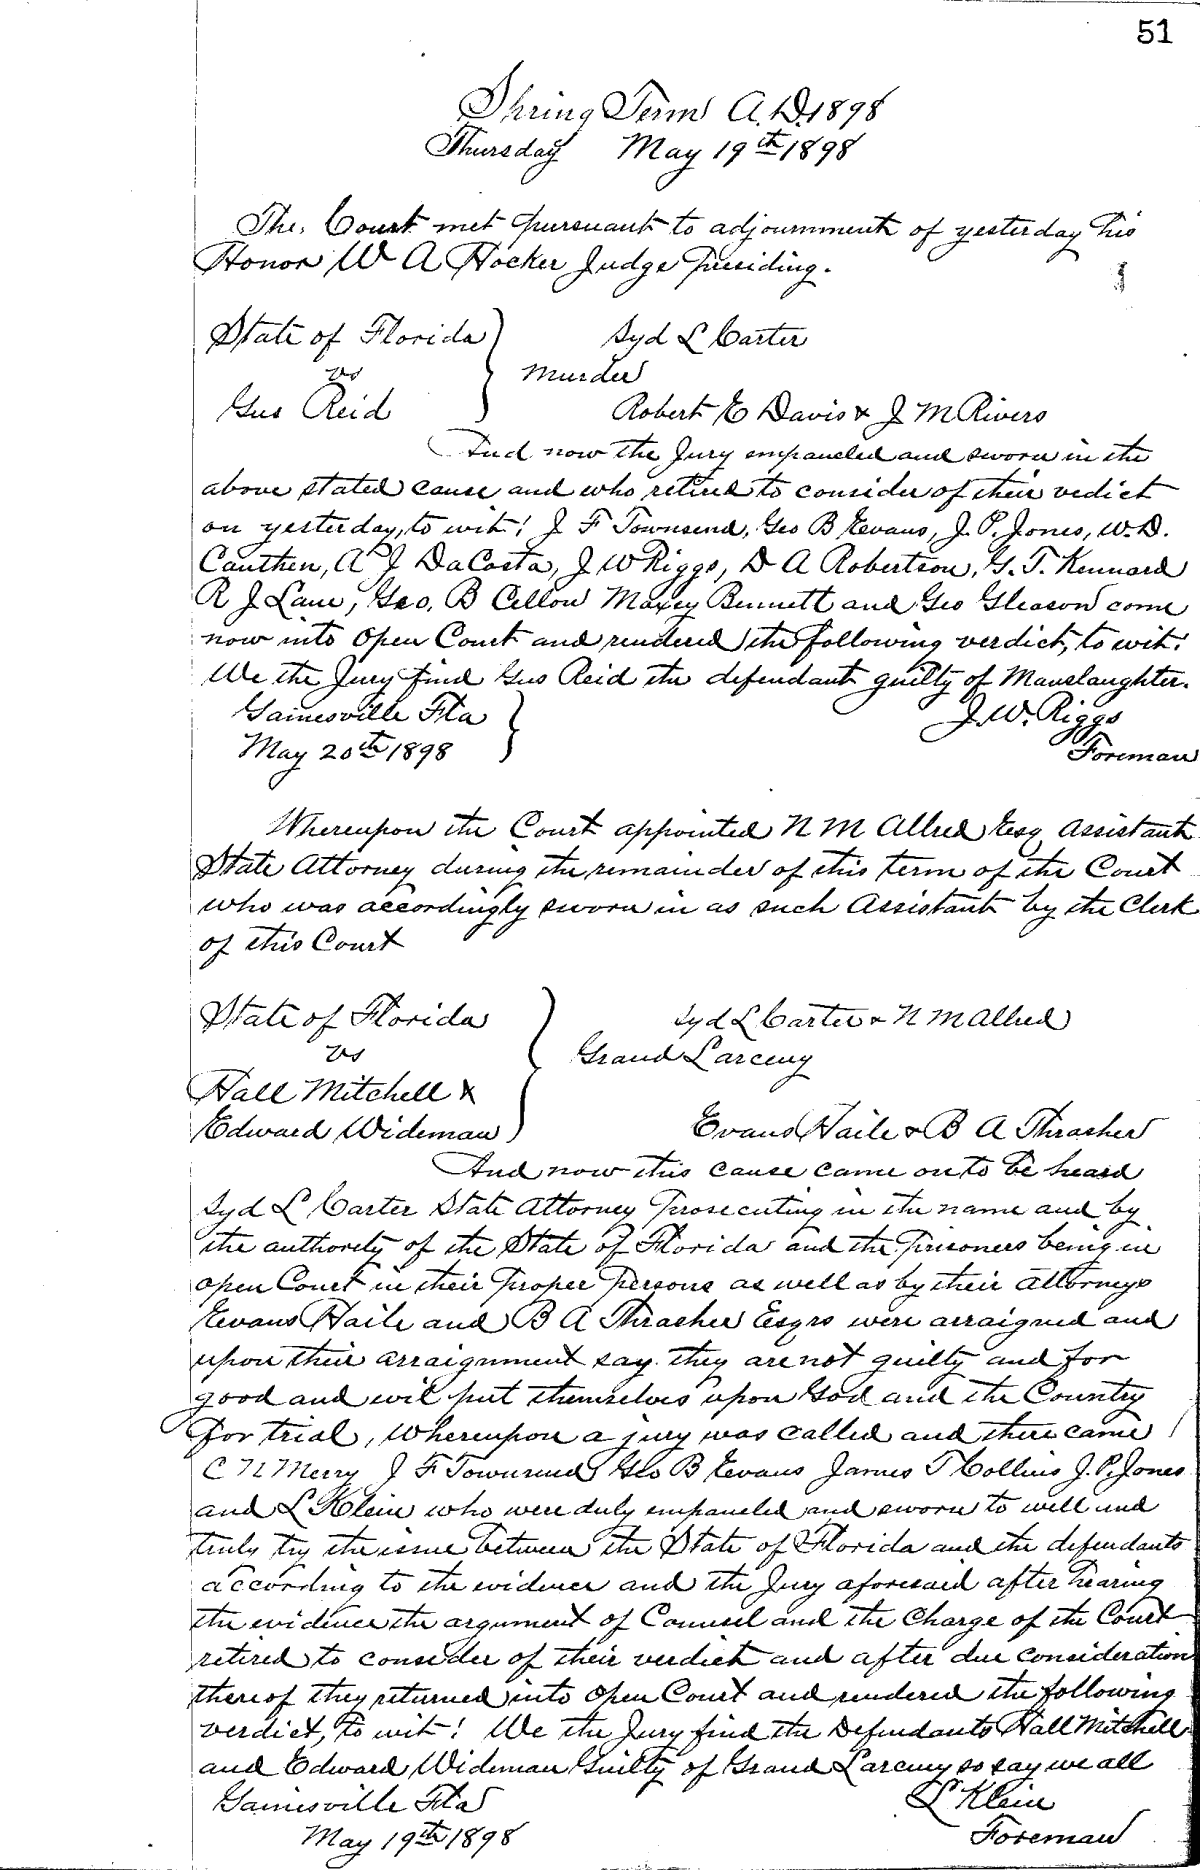 51
Spring Term A.D. 1898
Thursday May 19th 1898
The Court met pursuant to adjournment of yesterday his
Honor W A Hocker Judge Presiding.
State of Florida Syd L Carter
vs Murder
Gus Reid Robert E Davis & J M Rivers
And now the Jury empaneled and sworn in the
above stated cause and who retired to consider of their vedict
on yesterday, to wit: J F Townsend, Geo B Evans, J. P. Jones, W. D.
Cauthen, A J DaCosta, J W Riggs, D A Robertson, G. T. Kennard
R J Lane, Geo. B Cellon Maxey Bennett and Geo Gleason come
now into Open Court and rendered the following verdict, to wit:
We the Jury find Gus Reid the defendant guilty of Manslaughter.
Gainesville Fla J. W. Riggs
May 20th 1898 Foreman
Whereupon the Court appointed N M Allred Esq Assistant
State Attorney during the remainder of this term of the Court
who was accordingly sworn in as such Assistant by the Clerk
of this Court
State of Florida Syd L Carter & N M Allred
vs Grand Larceny
Hall Mitchell &
Edward Wideman Evans Haile & B A Thrasher
And now this cause came on to be heard
Syd L Carter State Attorney Prosecuting in the name and by
the authority of the State of Florida and the Prisoners being in
open Court in their Proper Persons as well as by their attorneys
Evans Haile and B A Thrasher Esqrs were arraigned and
upon their arraignment say they are not guilty and for
good and evil put themselves upon God and the Country
for trial, Whereupon a jury was called and there came
C N Merry J F Townsend Geo B Evans James T Collins J. P. Jones
and L Klein who were duly empaneled and sworn to well and
truly try the issue between the State of Florida and the defendants
according to the evidence and the Jury aforesaid after hearing
the evidence the argument of Counsel and the Charge of the Court
retired to consider of their verdict and after due consideration
thereof they returned into Open Court and rendered the following
verdict, to wit: We the Jury find the Defendants Hall Mitchell
and Edward Wideman Guilty of Grand Larceny so say we all
Gainesville Fla L Klein
May 19th 1898 Foreman